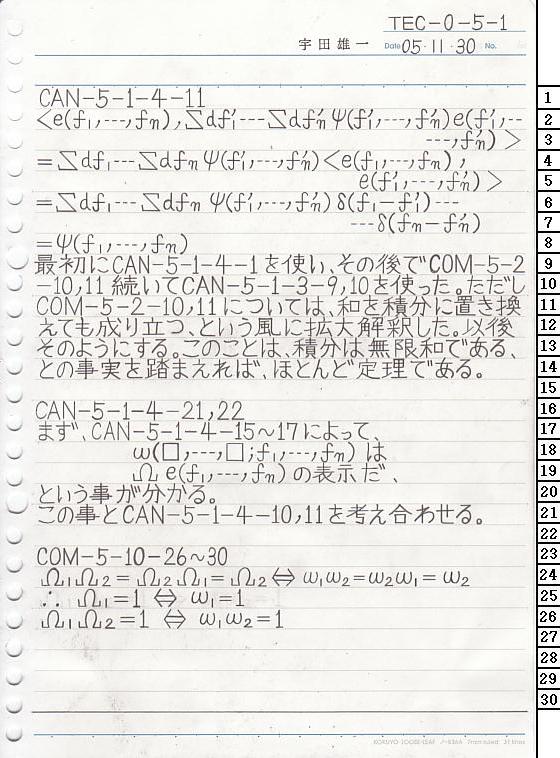 TEC-0-5-1
宇田雄一 Date 05・11・30 No.
CAN-5-1-4-11
<e(f₁,…,fₙ),∑df₁′…∑dfₙ′ψ(f₁′,…,fₙ′)e(f₁′,…
…,fₙ′)>
=∑df₁…∑dfₙψ(f₁′,…,fₙ′)<e(f₁,…,fₙ),
e(f₁′,…,fₙ′)>
=∑df₁…∑dfₙψ(f₁′,…,fₙ′)δ(f₁-f₁′)…
…δ(fₙ-fₙ′)
=ψ(f₁,…,fₙ)
最初にCAN-5-1-4-1を使い、その後でCOM-5-2
-10,11続いてCAN-5-1-3-9,10を使った。ただし
COM-5-2-10,11については、和を積分に置き換
えても成り立つ、という風に拡大解釈した。以後
そのようにする。このことは、積分は無限和である、
との事実を踏まえれば、ほとんど定理である。
CAN-5-1-4-21,22
まず、CAN-5-1-4-15~17によって、
ω(□,…,□;f₁,…,fₙ)は
Ω e(f₁,…,fₙ)の表示だ、
という事が分かる。
この事とCAN-5-1-4-10,11を考え合わせる。
COM-5-10-26~30
Ω₁Ω₂=Ω₂Ω₁=Ω₂⇔ω₁ω₂=ω₂ω₁=ω₂
∴ Ω₁=1⇔ω₁=1
Ω₁Ω₂=1⇔ω₁ω₂=1
1
2
3
4
5
6
7
8
9
10
11
12
13
14
15
16
17
18
19
20
21
22
23
24
25
26
27
28
29
30